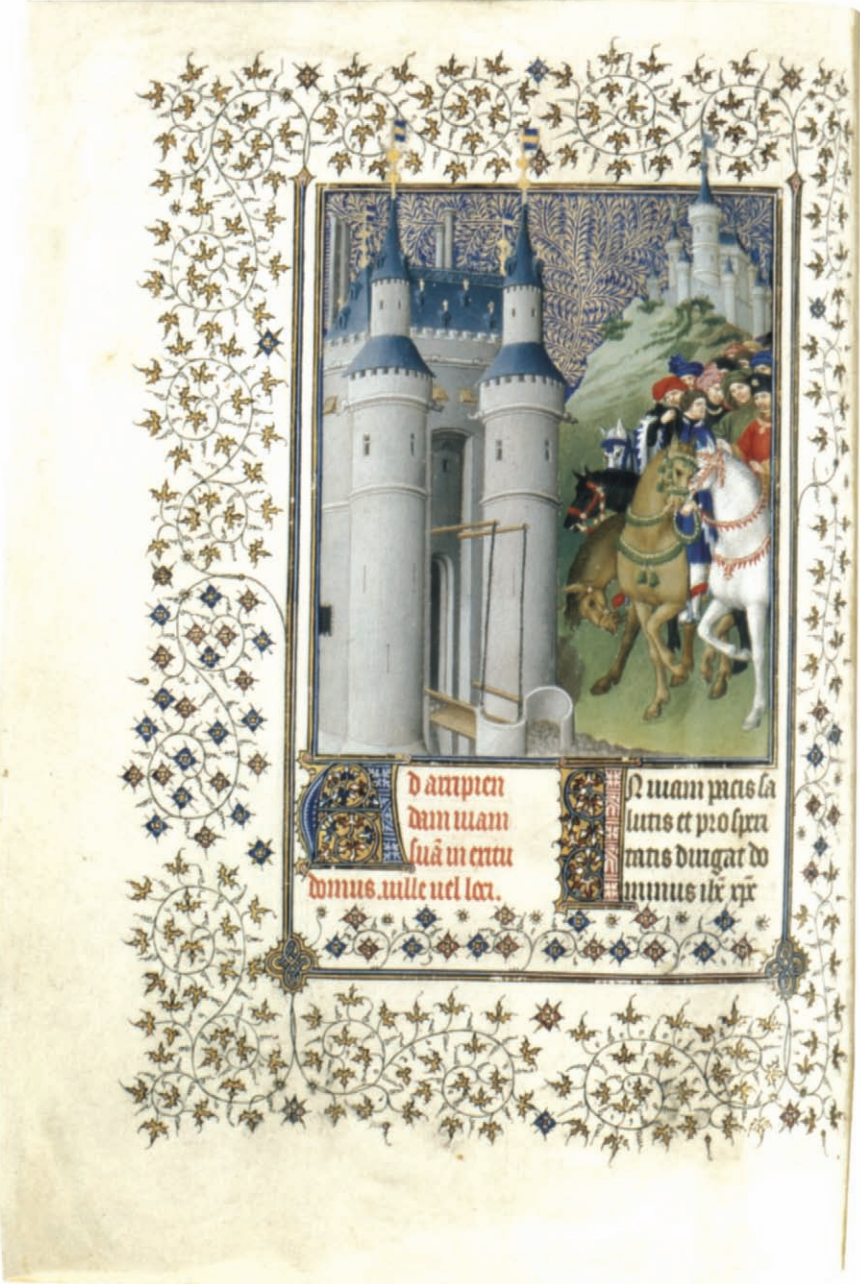 Ad arripien
dam uiam
suā in exitu
domus. uille uel loci.
IN uiam pacis sa
lutis et prosperi
tatis dirigat do
minus ihc xpc